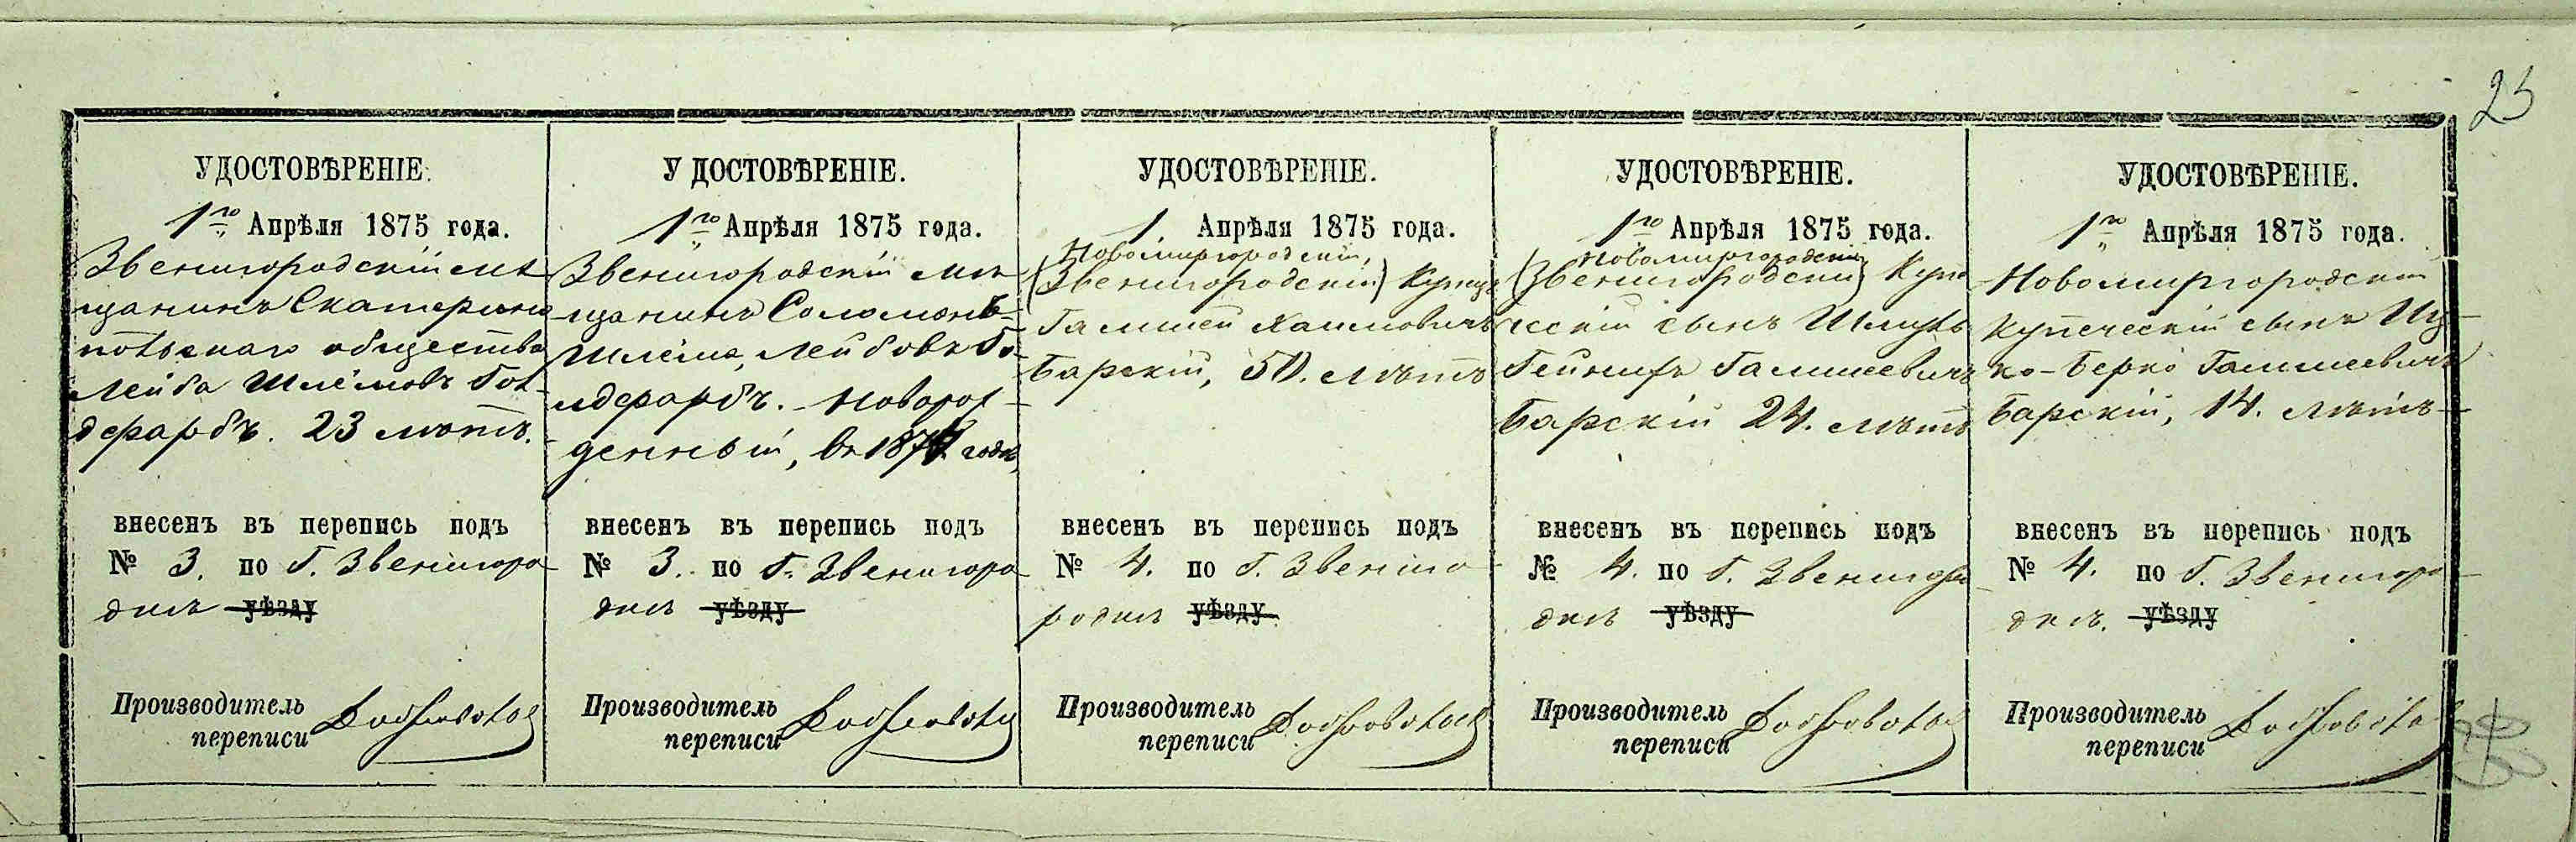 25
УДОСТОВѢРЕНІЕ.
1го Апрѣля 1875 года.
Звенигородскій мѣ-
щанинъ Екатерино
польскаго общества
Лейба Шлёмовъ Гол-
дфарбъ. 23 лѣтъ.
внесенъ въ перепись подъ
№ 3. по Г. Звенигоро
дкѣ уѣзду
Производитель
переписи
УДОСТОВѢРЕНІЕ.
1го Апрѣля 1875 года.
Звенигородскій мѣ
щанинъ Соломонъ-
Шлёма, Лейбовъ Го-
лдфарбъ. - Новорож-
денный, въ 187 годѣ
внесенъ въ перепись подъ
№ 3. по Г. Звенигоро
дкѣ уѣзду
Производитель
переписи
УДОСТОВѢРЕНІЕ.
1 Апрѣля 1875 года.
Новомиргородскій,
(Звенигородскій) Купецъ
Гамшей Хаимовичъ
Барскій, 50. лѣтъ
внесенъ въ перепись подъ
№ 4. по Г. Звениго
родкѣ уѣзду
Производитель
переписи
УДОСТОВѢРЕНІЕ.
1го Апрѣля 1875 года.
Новомиргородскій
(Звенигородскій) Купе
ческій сынъ Шмуль
Гейнихъ Гамшеевичъ
Барскій 24. лѣтъ
внесенъ въ перепись подъ
№ 4. по Г. Звенигоро
дкѣ уѣзду
Производитель
переписи
УДОСТОВѢРЕНІЕ.
1го Апрѣля 1875 года.
Новомиргородскій
Купеческій сынъ Иц-
ко-Берко Гамшеевичъ
Барскій, 14. лѣтъ
внесенъ въ перепись подъ
№ 4. по Г. Звенигоро
дкѣ. уѣзду
Производитель
переписи